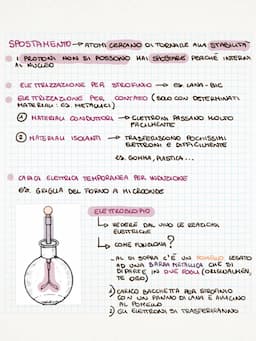 SPOSTAMENTO → ATOMI CERCANO DI TORNARE ALLA STABILITÀ
I PROTONI NON SI POSSONO MAI SPOSTARE PERCHÉ INTERNI
AL NUCLEO
ELETTRIZZAZIONE PER STROFINIO → ES. LANA - BIC
ELETTRIZZAZIONE PER CONTATO (SOLO CON DETERMINATI
MATERIALI: ES. METALLICI)
① MATERIALI CONDUTTORI → ELETTRONI PASSANO MOLTO
FACILMENTE
② MATERIALI ISOLANTI → TRASFERISCONO POCHISSIMI
ELETTRONI E DIFFICILMENTE
ES. GOMMA, PLASTICA...
CARICA ELETTRICA TEMPORANEA PER INDUZIONE
ES. GRIGLIA DEL FORNO A MICROONDE
ELETTROSCOPIO
↳ VEDERE DAL VIVO LE REAZIONI
ELETTRICHE
↳ COME FUNZIONA?
- AL DI SOPRA C'È UN POMELLO LEGATO
AD UNA BARRA METALLICA CHE SI
DIPARTE IN DUE FOGLI (ORIGINALMEN
TE ORO)
1) CARICO BACCHETTA PER STROFINIO
CON UN PANNO DI LANA E AVVICINO
AL POMELLO
2) GLI ELETTRONI SI TRASFERIRANNO